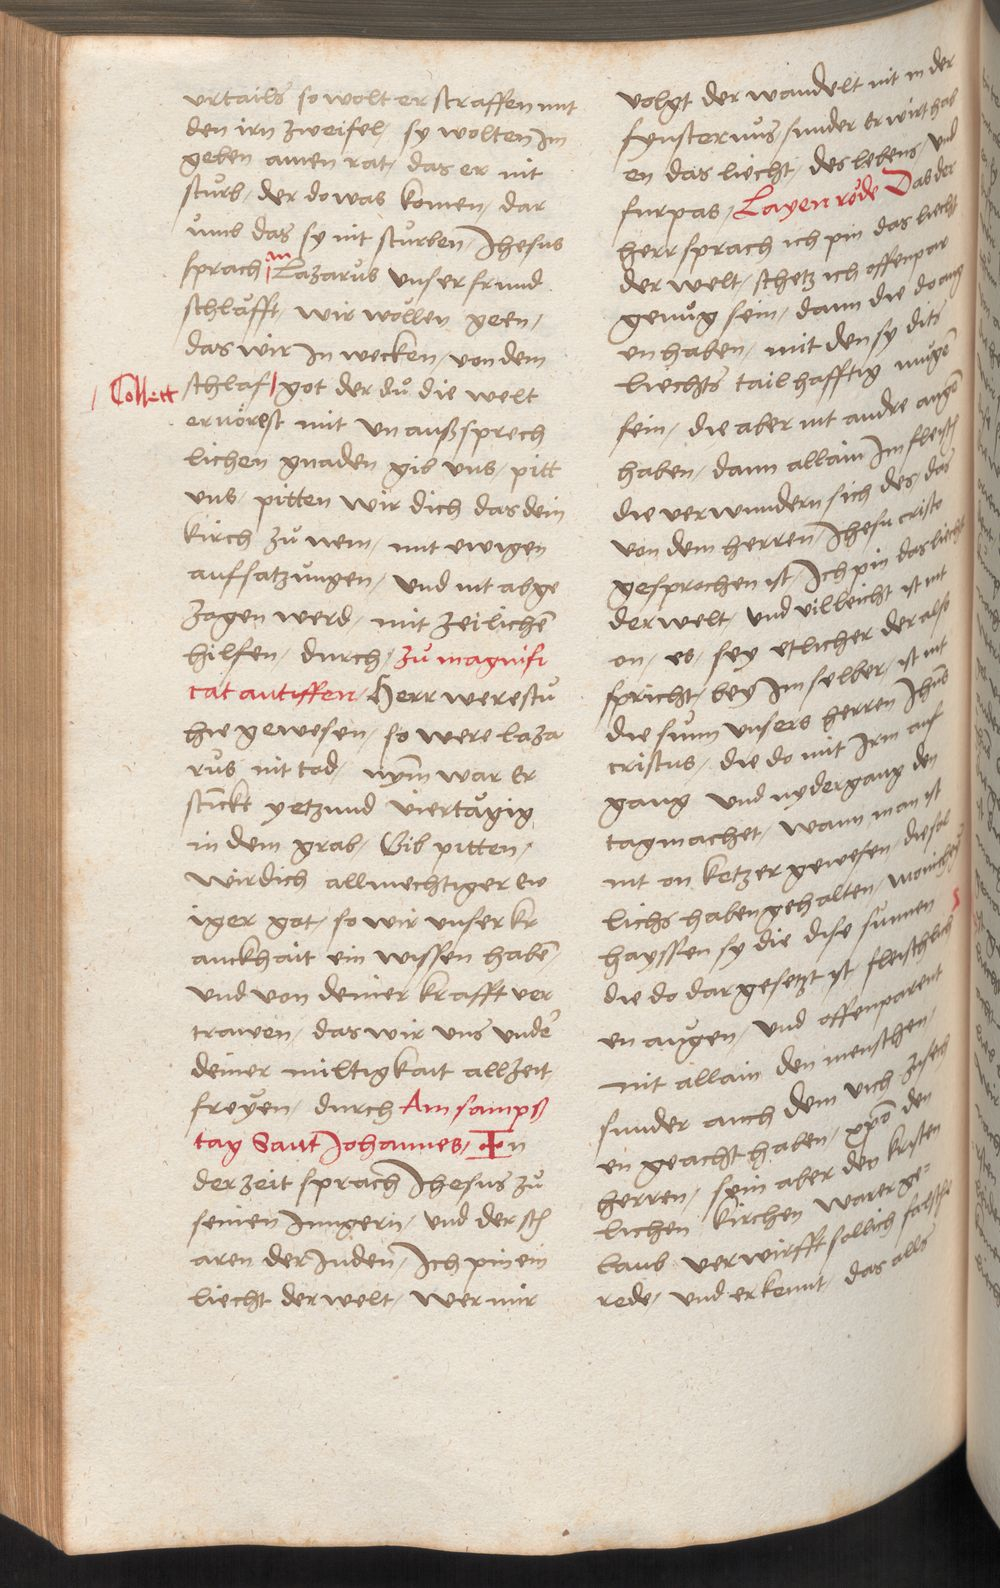 urtails so wolt er straffen mit
den irn zweifel / sy wolten Im
geben ainen rat / das er nit
sturb / der do was komen / dar
umb das sy nit sturben / Jhesus
sprach / Lazarus unser frund
schläfft / wir wöllen geen /
das wir In wecken / von dem
Collett schlaf / got der du die welt
ernörest mit unaußsprech
lichen gnaden gib uns / pitt
uns / pitten wir dich das dein
kirch zu nem / mit ewigen
aufsatzungen / und nit abge
zogen werd / mit zeitlichē
hilfen / durch / zu magnifi
cat antiffen / Herr werestu
hie gewesen / so were laza
rus nit tod / nym̄ war Er
stinckt yetzund viertägig
in dem grab / Gib pitten /
wir dich allmechtiger ew
iger got / so wir unser kr
anckhait ein wissen habē /
und von deiner krafft ver
trawen / das wir uns undē
deiner miltigkait allzeit
freyen / durch Am samps
tag Sant Johannes / In
der zeit sprach Jhesus zu
seinen Jungern / und der sch
aren der Juden / Ich pin ein
liecht der welt / wer mir
volgt der wandelt nit in der
fynsternus / sunder er wirt hab
en das liecht / des lebens / und
furpas / Layen rede Das der
herr sprach ich pin das liecht
der welt / schetz ich offenpar
genug sein / dann die do aug
en haben / mit den sy dits
liechts tailhafftig mugē
sein / die aber nit andre augē
haben / dann allain Im fleisch
die verwundern sich des / das
von dem herren Jhesu cristo
gesprochen ist / Ich pin das liecht
der welt / und villeicht ist nit
on / es / sey etlicher der also
spricht / bey Im selber / ist nit
die sunn unsers herren Jhūs
cristus / die do mit Irm auf
gang und nydergang den
tag machet / wann man ist
nit on ketzer gewesen / die sol
lichs haben gehalten / monichey
hayssen sy die dise sunnen
die do dargesetzt ist fleischlich
en augen / und offenparent
nit allain den menschen /
sunder auch dem vich zusech
en geacht haben / xpō den
herren / sein aber der kristen
lichen kirchen warer ge=
laub verwirfft sollich falsche
rede / und erkennt / das alls